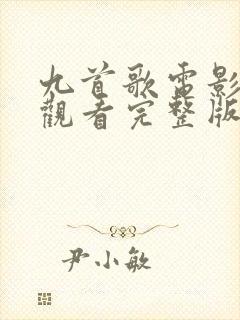 九首歌電影
觀看完整版
尹小敏